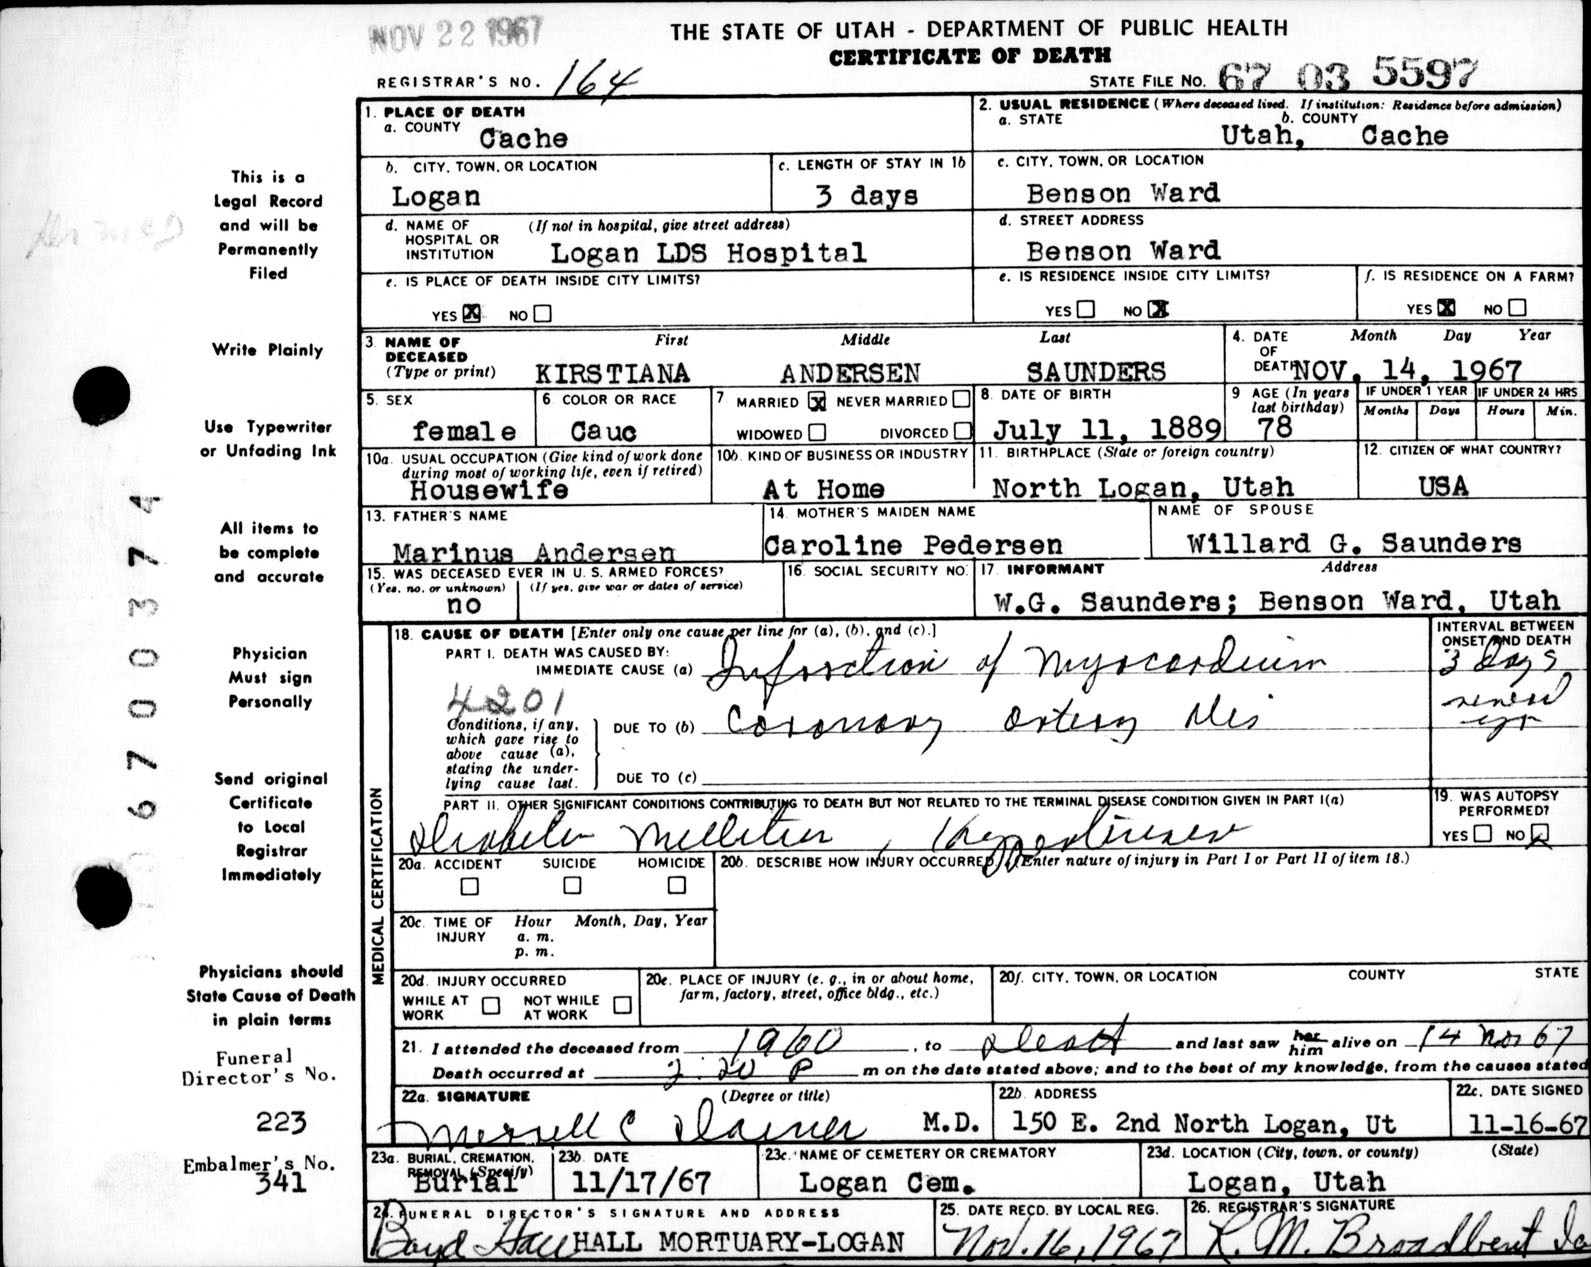 NOV 22 1967
THE STATE OF UTAH - DEPARTMENT OF PUBLIC HEALTH
CERTIFICATE OF DEATH
REGISTRAR'S NO. 164
STATE FILE NO. 67 03 5597
This is a
Legal Record
and will be
Permanently
Filed
Write Plainly
Use Typewriter
or Unfading Ink
All items to
be complete
and accurate
Physician
Must sign
Personally
Send original
Certificate
to Local
Registrar
Immediately
Physicians should
State Cause of Death
in plain terms
Funeral
Director's No.
223
Embalmer's No.
341
0 6 7 0 0 3 7 4
1. PLACE OF DEATH
a. COUNTY Cache
2. USUAL RESIDENCE (Where deceased lived. If institution: Residence before admission)
a. STATE Utah, b. COUNTY Cache
b. CITY, TOWN, OR LOCATION
Logan
c. LENGTH OF STAY IN 1b
3 days
c. CITY, TOWN, OR LOCATION
Benson Ward
d. NAME OF HOSPITAL OR INSTITUTION (If not in hospital, give street address)
Logan LDS Hospital
d. STREET ADDRESS
Benson Ward
e. IS PLACE OF DEATH INSIDE CITY LIMITS?
YES X NO
e. IS RESIDENCE INSIDE CITY LIMITS?
YES NO X
f. IS RESIDENCE ON A FARM?
YES X NO
3. NAME OF DECEASED (Type or print)
First Middle Last
KIRSTIANA ANDERSEN SAUNDERS
4. DATE OF DEATH
Month Day Year
NOV. 14, 1967
5. SEX
female
6 COLOR OR RACE
Cauc
7 MARRIED X NEVER MARRIED
WIDOWED DIVORCED
8. DATE OF BIRTH
July 11, 1889
9 AGE (In years last birthday)
78
IF UNDER 1 YEAR
Months Days
IF UNDER 24 HRS
Hours Min.
10a. USUAL OCCUPATION (Give kind of work done during most of working life, even if retired)
Housewife
10b. KIND OF BUSINESS OR INDUSTRY
At Home
11. BIRTHPLACE (State or foreign country)
North Logan, Utah
12. CITIZEN OF WHAT COUNTRY?
USA
13. FATHER'S NAME
Marinus Andersen
14. MOTHER'S MAIDEN NAME
Caroline Pedersen
NAME OF SPOUSE
Willard G. Saunders
15. WAS DECEASED EVER IN U. S. ARMED FORCES?
(Yes, no, or unknown) (If yes, give war or dates of service)
no
16. SOCIAL SECURITY NO.
17. INFORMANT Address
W.G. Saunders; Benson Ward, Utah
MEDICAL CERTIFICATION
18. CAUSE OF DEATH [Enter only one cause per line for (a), (b), and (c).]
PART I. DEATH WAS CAUSED BY:
IMMEDIATE CAUSE (a) Infarction of Myocardium
INTERVAL BETWEEN ONSET AND DEATH
3 days
4201
Conditions, if any, which gave rise to above cause (a), stating the underlying cause last.
DUE TO (b) Coronary artery dis
DUE TO (c)
PART II. OTHER SIGNIFICANT CONDITIONS CONTRIBUTING TO DEATH BUT NOT RELATED TO THE TERMINAL DISEASE CONDITION GIVEN IN PART I(a)
Diabetes Mellitus, Hypertension
19. WAS AUTOPSY PERFORMED?
YES NO X
20a. ACCIDENT SUICIDE HOMICIDE
20b. DESCRIBE HOW INJURY OCCURRED. (Enter nature of injury in Part I or Part II of item 18.)
20c. TIME OF INJURY Hour Month, Day, Year
a. m.
p. m.
20d. INJURY OCCURRED
WHILE AT WORK NOT WHILE AT WORK
20e. PLACE OF INJURY (e. g., in or about home, farm, factory, street, office bldg., etc.)
20f. CITY, TOWN, OR LOCATION COUNTY STATE
21. I attended the deceased from 1960, to Death and last saw her him alive on 14 Nov 67
Death occurred at 2:20 P m on the date stated above; and to the best of my knowledge, from the causes stated
22a. SIGNATURE (Degree or title)
Merrill C M.D.
22b. ADDRESS
150 E. 2nd North Logan, Ut
22c. DATE SIGNED
11-16-67
23a. BURIAL, CREMATION, REMOVAL (Specify)
Burial
23b. DATE
11/17/67
23c. NAME OF CEMETERY OR CREMATORY
Logan Cem.
23d. LOCATION (City, town, or county) (State)
Logan, Utah
24. FUNERAL DIRECTOR'S SIGNATURE AND ADDRESS
Boyd Hall HALL MORTUARY-LOGAN
25. DATE RECD. BY LOCAL REG.
Nov. 16, 1967
26. REGISTRAR'S SIGNATURE
R. M. Broadbent